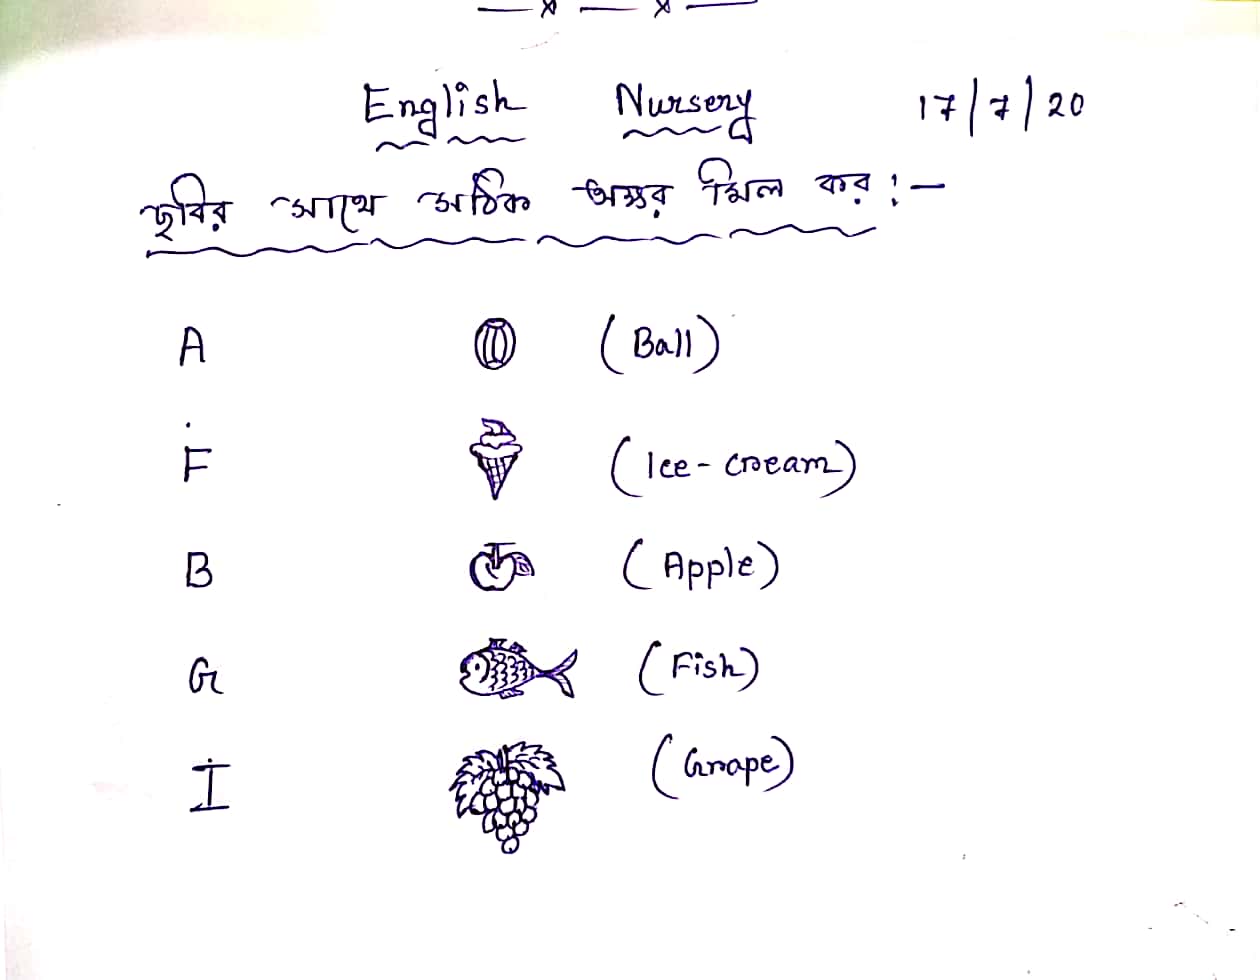 English Nursery 17/7/20
ছবির সাথে সঠিক অক্ষর মিল কর :-
A (Ball)
F (Ice-cream)
B (Apple)
G (Fish)
I (Grape)